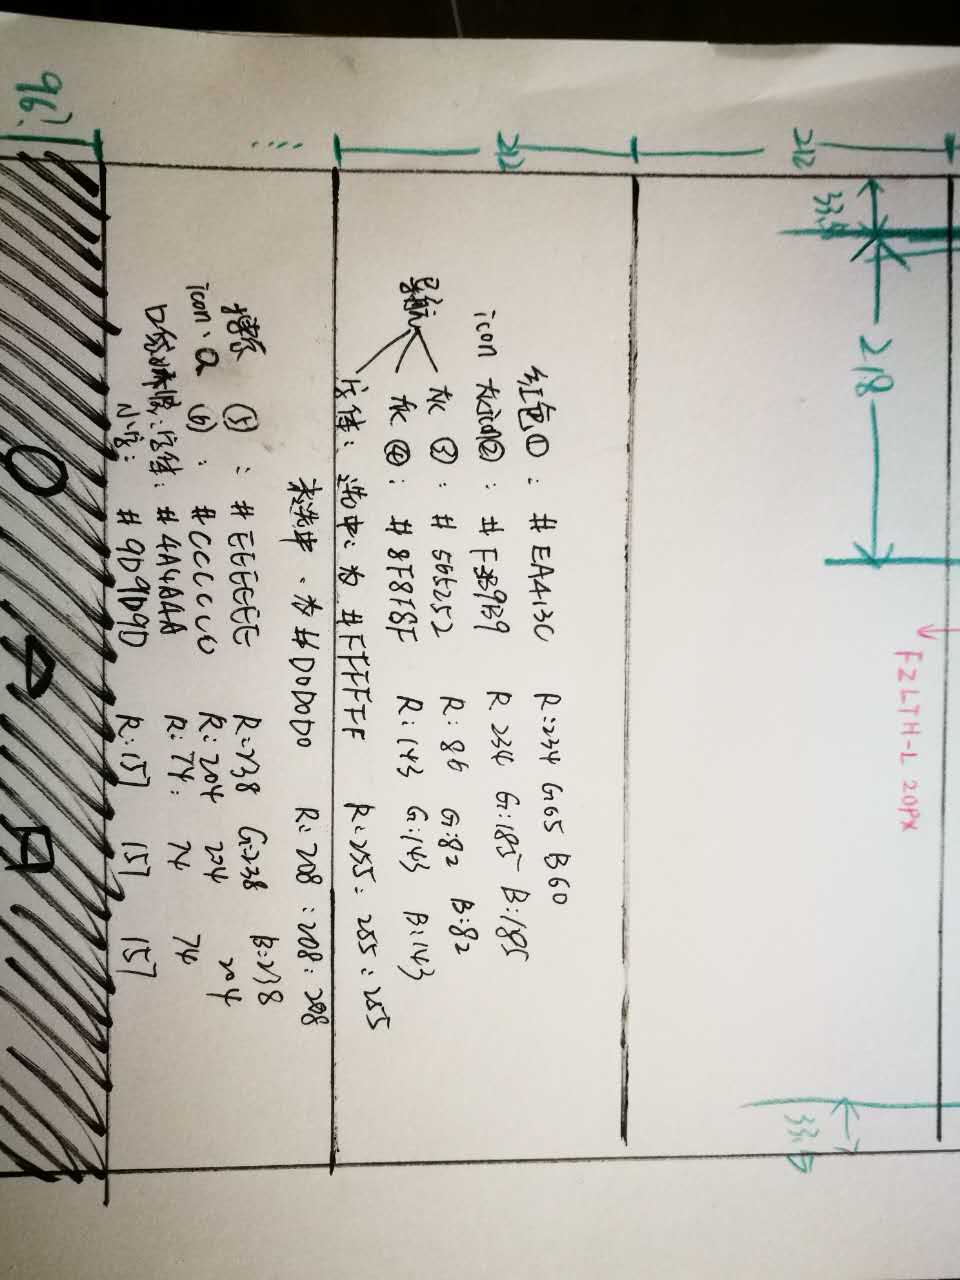 FZLTH-L 20PX
218
33.5
33.5
212
212
红色①: #EA413C R:234 G65 B60
icon 灰icon②: #F3B9B9 R 234 G:185 B:185
导航
灰 ③: #565252 R:86 G:82 B:82
灰 ④: #8F8F8F R:143 G:143 B:143
字体: 选中: 为 #FFFFFF R:255: 255:255
未选中. 为 #D0D0D0 R:208 :208:208
搜索 ⑤: #EEEEEE R:238 G:238 B:238
icon: ⑥: #CCCCCC R:204 204 204
口袋 字体: #4A4A4A R:74: 74 74
小字: #9D9D9D R:157 157 157
96?